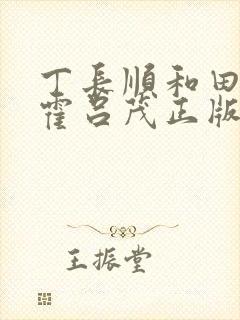 丁長順和田
霍吕茂正版
王振堂